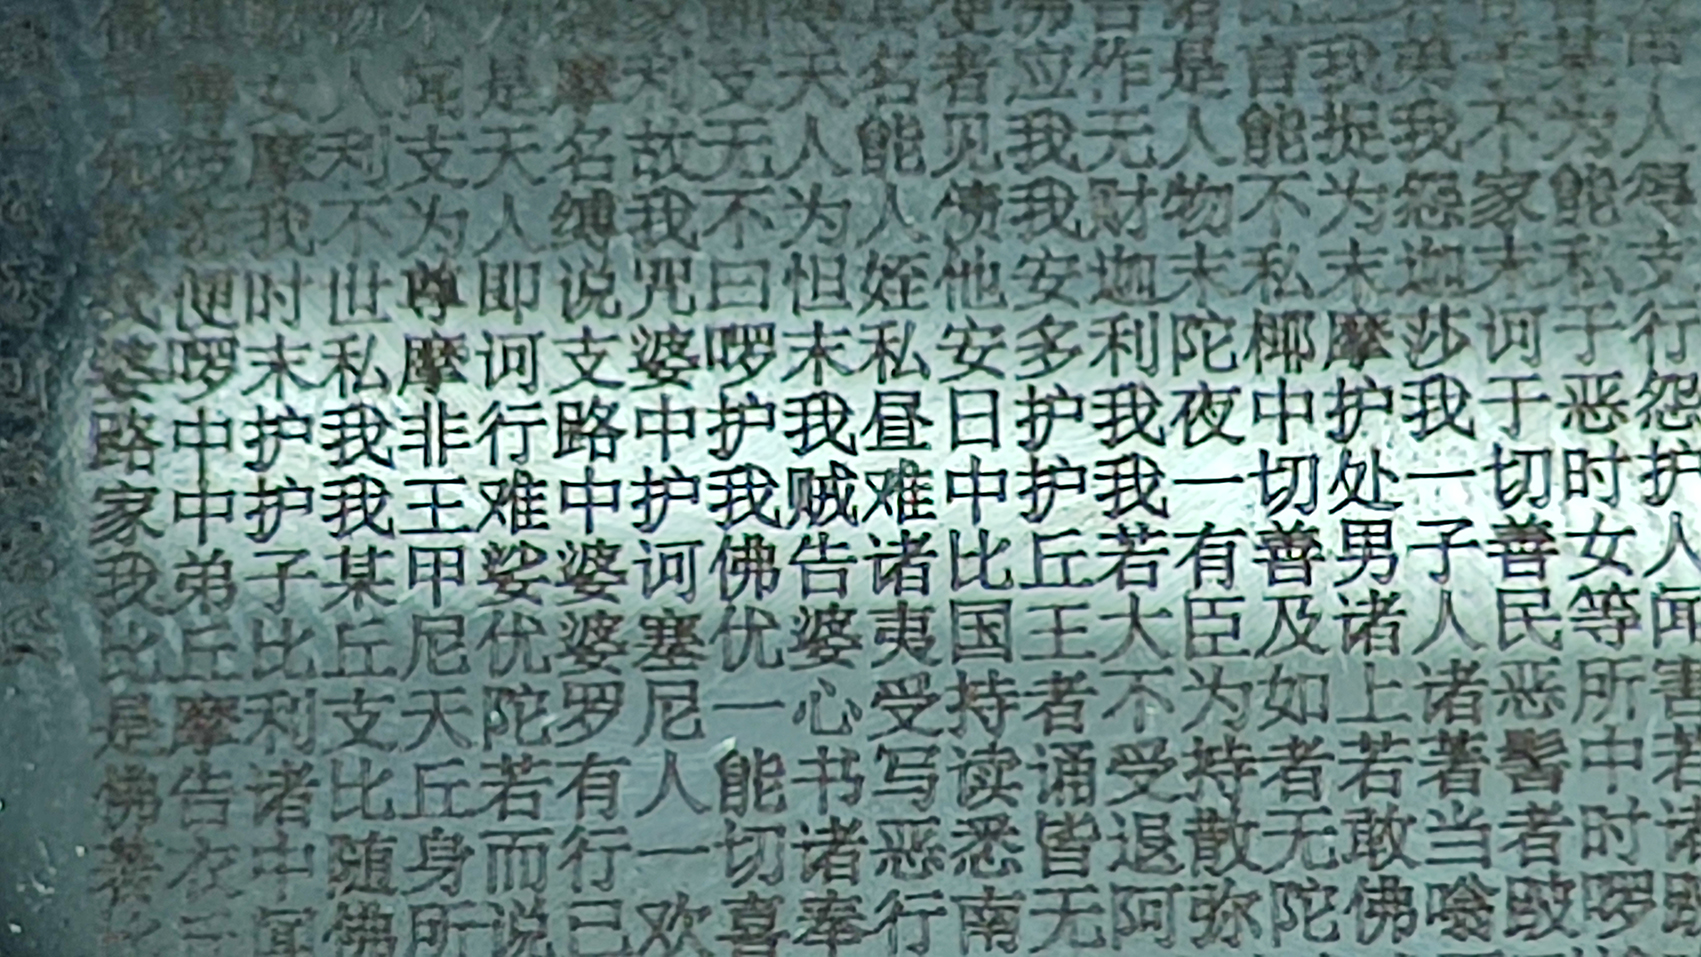 女人闻是摩利支天名者应作是言我
彼摩利支天名故无人能见我无人能捉我不为人
我不为人缚我不为人债我财物不为怨家能得
便时世尊即说咒曰怛姪他安迦末私末迦末私支
婆啰末私摩诃支婆啰末私安多利陀椰摩莎诃于行
路中护我非行路中护我昼日护我夜中护我于恶怨
家中护我王难中护我贼难中护我一切处一切时护
我弟子某甲娑婆诃佛告诸比丘若有善男子善女人
比丘比丘尼优婆塞优婆夷国王大臣及诸人民等闻
是摩利支天陀罗尼一心受持者不为如上诸恶所害
佛告诸比丘若有人能书写读诵受持者若著髻中若
衣中随身而行一切诸恶悉皆退散无敢当者时诸
闻佛所说已欢喜奉行南无阿弥陀佛唵跛啰